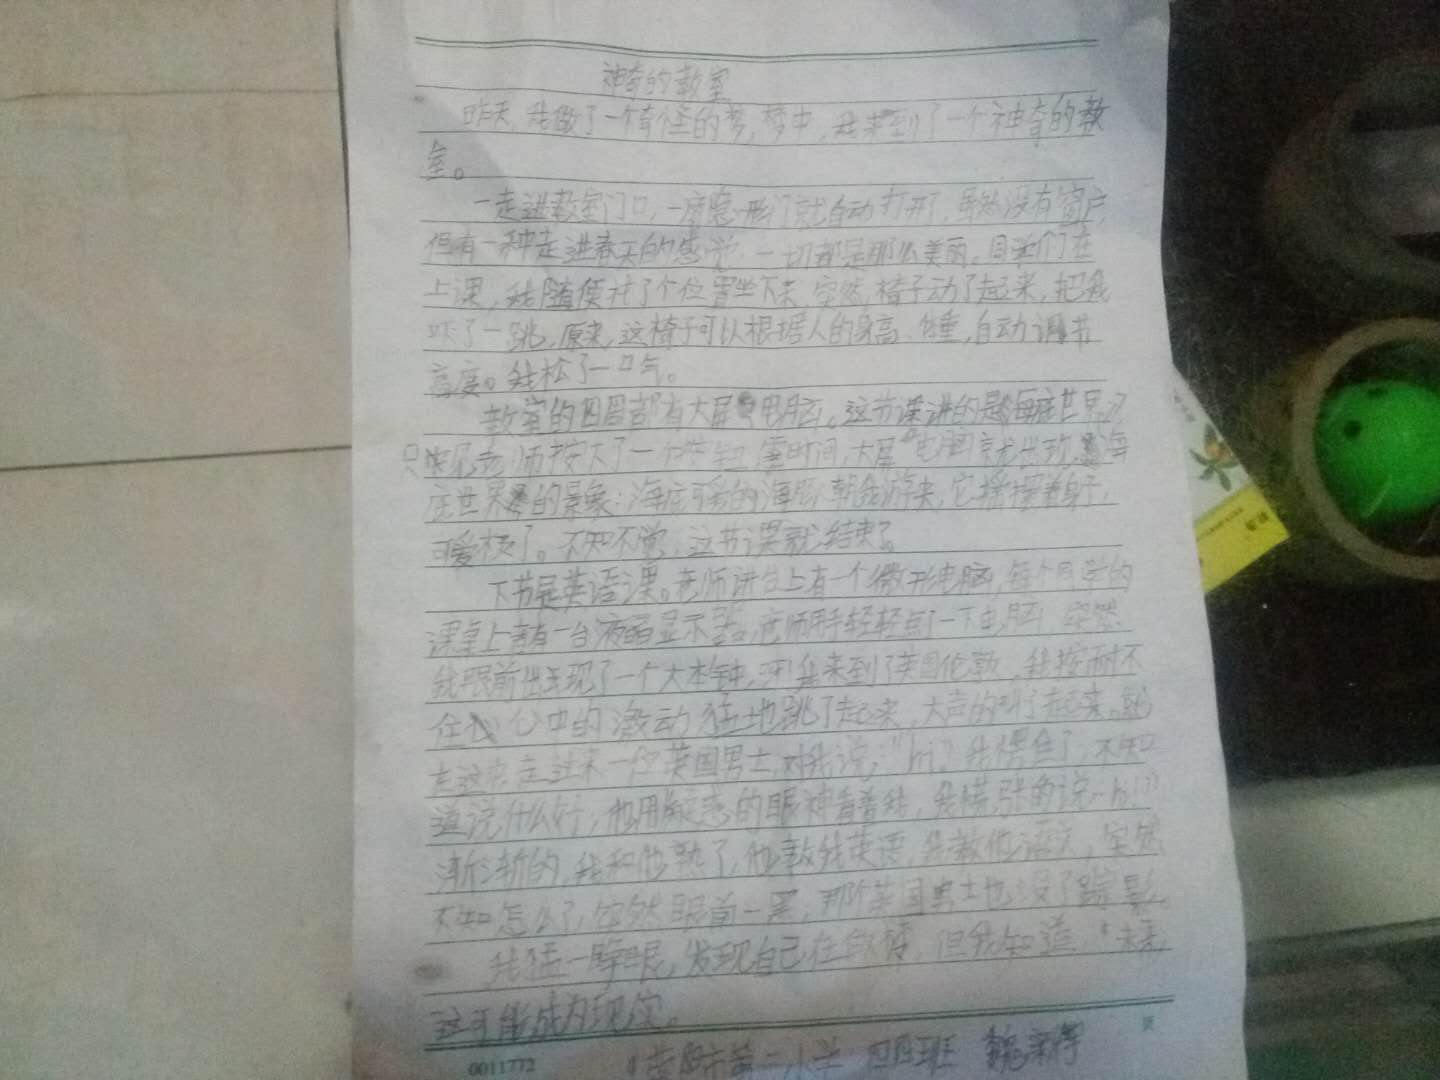 神奇的教室
昨天,我做了一个奇怪的梦,梦中,我来到了一个神奇的教
室。
一走进教室门口,一扇隐形门就自动打开了,虽然没有窗户,
但有一种走进春天的感觉,一切都是那么美丽。同学们在
上课,我随便找了个位置坐下来,突然,椅子动了起来,把我
吓了一跳,原来,这椅子可以根据人的身高、体重,自动调节
高度。我松了一口气。
教室的四周都有大屏电脑。这节课讲的是海底世界,
只见老师按下了一个按钮,霎时间,大屏电脑就出现海
底世界的景象:海底可爱的海豚朝我游来,它摇摆着身子,
可爱极了。不知不觉,这节课就结束了。
下节是英语课。老师讲台上有一个微形电脑,每个同学的
课桌上有一台液晶显示器,老师用手轻轻点了一下电脑,突然
我眼前出现了一个大本钟,我来到了英国伦敦,我按耐不
住心中的激动猛地跳了起来,大声的叫了起来,
走过来一位英国男士,对我说:"hi"我愣住了,不知
道说什么好,他用疑惑的眼神看着我,我慌张的说"hi"
渐渐的,我和他熟了,他教我英语,我教他汉语,突然
不知怎么了,突然眼前一黑,那个英国男士也没了踪影。
我猛一睁眼,发现自己在做梦,但我知道,未来
这可能成为现实。
0011772
市第二小学 四班 魏
页